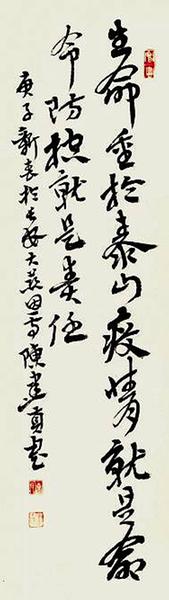 生命重於泰山疫情就是命
令防控就是責任
庚子新春於長安大茲恩寺陳建貢書